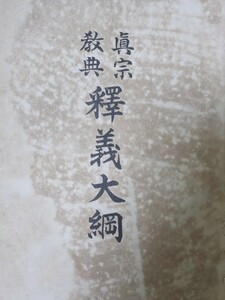 眞宗
教典
釋義大綱